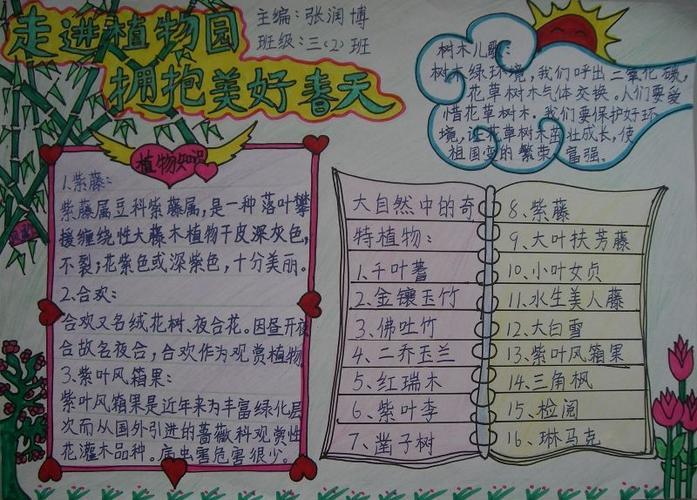 走进植物园
拥抱美好春天
主编：张润博
班级：三(2)班
树木儿歌：
树木绿环境，我们呼出二氧化碳，
花草树木气体交换。人们要爱
惜花草树木，我们要保护好环
境，让花草树木茁壮成长，使
祖国变的繁荣、富强。
植物知识
1.紫藤：
紫藤属豆科紫藤属，是一种落叶攀
援缠绕性大藤木植物干皮深灰色，
不裂；花紫色或深紫色，十分美丽。
2.合欢：
合欢又名绒花树、夜合花。因昼开夜
合故名夜合，合欢作为观赏植物
3.紫叶风箱果：
紫叶风箱果是近年来为丰富绿化层
次而从国外引进的蔷薇科观赏性
花灌木品种。病虫害危害很少。
大自然中的奇
特植物：
1.千叶蓍
2.金镶玉竹
3.佛吐竹
4.二乔玉兰
5.红瑞木
6.紫叶李
7.凿子树
8.紫藤
9.大叶扶芳藤
10.小叶女贞
11.水生美人藤
12.大白雪
13.紫叶风箱果
14.三角枫
15.检阅
16.琳马克